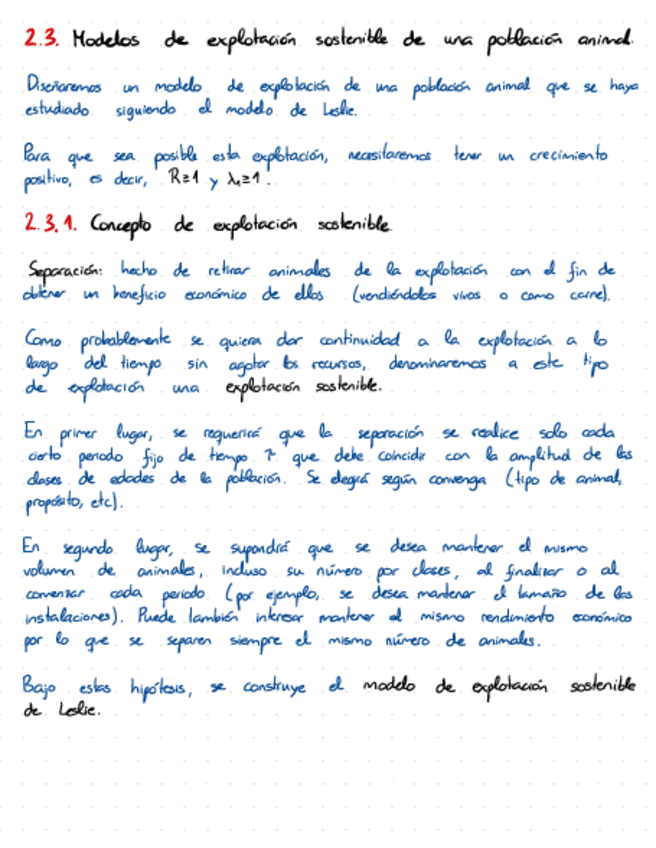 2.3. Modelos de explotación sostenible de una población animal.
Diseñaremos un modelo de explotación de una población animal que se haya
estudiado siguiendo el modelo de Leslie.
Para que sea posible esta explotación, necesitaremos tener un crecimiento
positivo, es decir, R≥1 y λ₁≥1.
2.3.1. Concepto de explotación sostenible
Separación: hecho de retirar animales de la explotación con el fin de
obtener un beneficio económico de ellos (vendiéndolos vivos o como carne).
Como probablemente se quiera dar continuidad a la explotación a lo
largo del tiempo sin agotar los recursos, denominaremos a este tipo
de explotación una explotación sostenible.
En primer lugar, se requerirá que la separación se realice solo cada
cierto periodo fijo de tiempo que debe coincidir con la amplitud de las
clases de edades de la población. Se elegirá según convenga (tipo de animal,
propósito, etc).
En segundo lugar, se supondrá que se desea mantener el mismo
volumen de animales, incluso su número por clases, al finalizar o al
comenzar cada periodo (por ejemplo, se desea mantener el tamaño de las
instalaciones). Puede también interesar mantener el mismo rendimiento económico
por lo que se separen siempre el mismo número de animales.
Bajo estas hipótesis, se construye el modelo de explotación sostenible
de Leslie.